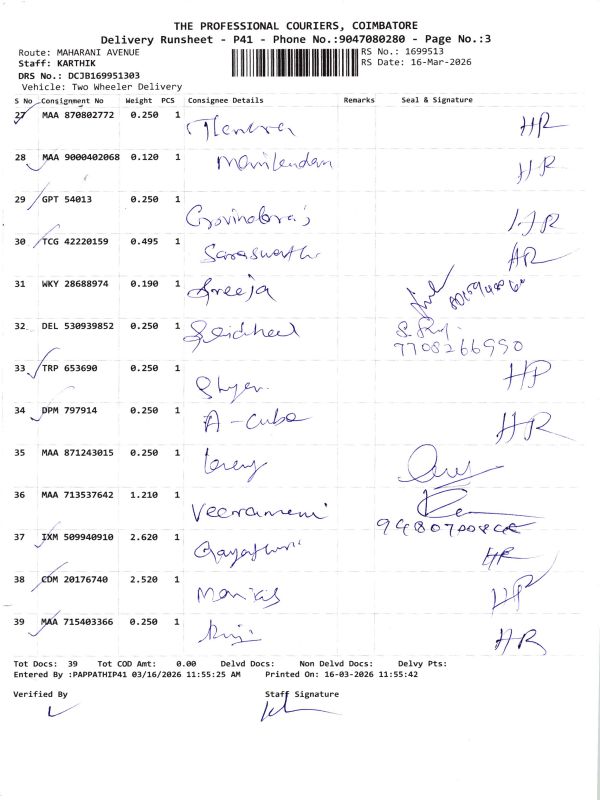 THE PROFESSIONAL COURIERS, COIMBATORE
Delivery Runsheet - P41 - Phone No.:9047080280 - Page No.:3
Route: MAHARANI AVENUE RS No.: 1699513
Staff: KARTHIK RS Date: 16-Mar-2026
DRS No.: DCJB169951303
Vehicle: Two Wheeler Delivery
S No Consignment No Weight PCS Consignee Details Remarks Seal & Signature
27 MAA 870802772 0.250 1 HR
28 MAA 9000402068 0.120 1 Manikandan HR
29 GPT 54013 0.250 1 Govindaraj HR
30 TCG 42220159 0.495 1 Saraswathi HR
31 WKY 28688974 0.190 1 Sreeja
32 DEL 530939852 0.250 1
7708266990
33 TRP 653690 0.250 1 Shyam HR
34 DPM 797914 0.250 1 A-Cube HR
35 MAA 871243015 0.250 1
36 MAA 713537642 1.210 1 Veeramani
37 IXM 509940910 2.620 1 Gayathri HR
38 CDM 20176740 2.520 1 HR
39 MAA 715403366 0.250 1 HR
Tot Docs: 39 Tot COD Amt: 0.00 Delvd Docs: Non Delvd Docs: Delvy Pts:
Entered By :PAPPATHIP41 03/16/2026 11:55:25 AM Printed On: 16-03-2026 11:55:42
Verified By Staff Signature